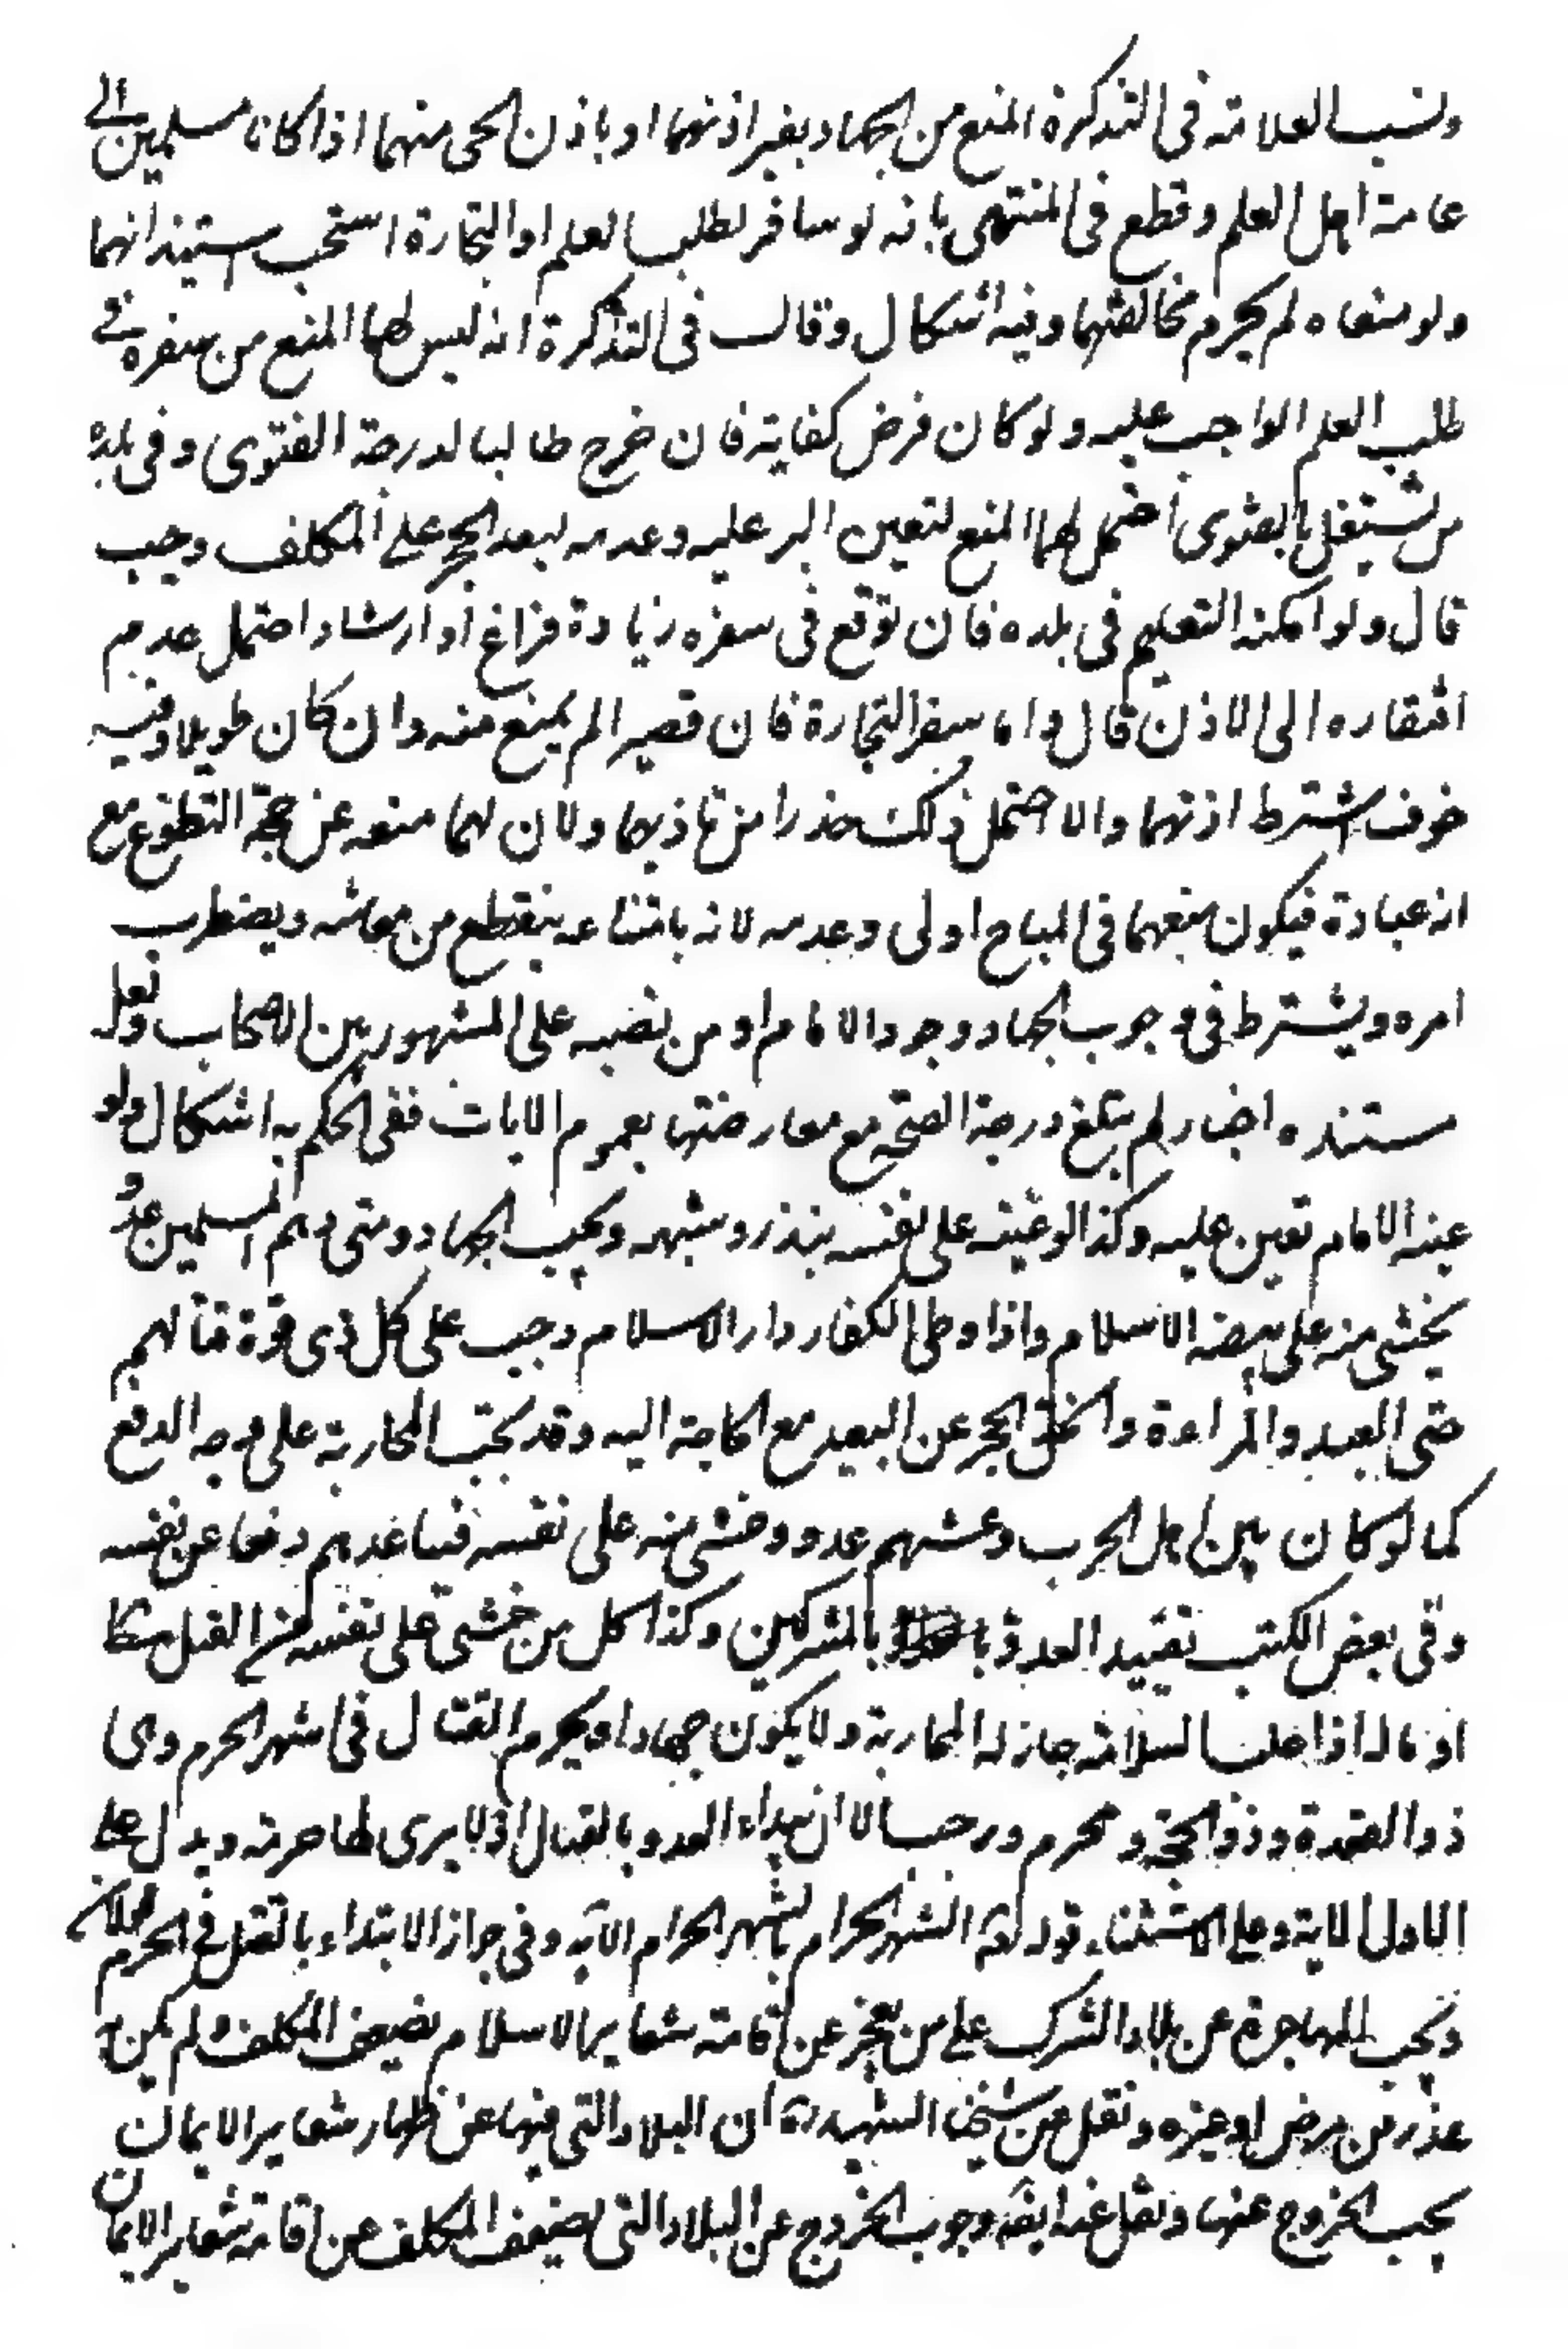 ونسب العلامة في التذكرة المنع من الجهاد بغير اذنهما او باذن الحى منهما اذا كانا مسلمين الى
عامة اهل العلم وقطع في المنتهى بانه لو سافر لطلب العلم او التجارة استحب استيذانهما
ولو منعاه لم يحرم مخالفتهما وفيه اشكال وقال في التذكرة انه ليس لهما المنع من سفره في
طلب العلم الواجب عليه ولو كان فرض كفاية فان خرج طالبا لدرجة الفتوى وفى بلده
من يشتغل بالفتوى احتمل لهما المنع لتعين البر عليه وعدمه لبعد الحجر على المكلف وحبسه
قال ولو امكنه التعليم في بلده فان توقع في سفره زيادة فراغ او ارشاد احتمل عدم
افتقاره الى الاذن قال واما سفر التجارة فان قصيرا لم يمنع منه وان كان طويلا وفيه
خوف اشترط اذنهما والا احتمل ذلك حذرا من تاذيهما ولان لهما منعه عن حجة التطوع مع
انه عبادة فيكون منعهما في المباح اولى وعدمه لانه بامتناعه ينقطع من معاشه ويضطرب
امره ويشترط في وجوب الجهاد وجود الامام او من نصبه على المشهور بين الاصحاب ولعل
مستنده اخبار لم تبلغ درجة الصحة مع معارضتها بعموم الايات ففى الحكم به اشكال ولو
عينه الامام تعين عليه وكذا لو عينه على نفسه بنذر وشبهه ويجب الجهاد ومتى دهم المسلمين عدو
يخشى منه على بيضة الاسلام واذا وطى الكفار دار الاسلام وجب على كل ذى قوة قتالهم
حتى العبد والمراءة وانحل الحجر عن العبيد مع الحاجة اليه وقد تجب المحاربة على وجه الدفع
كما لو كان بين اهل الحرب وغشيهم عدو وخشى منه على نفسه فيساعدهم دفعا عن نفسه
وفى بعض الكتب تقييد العدو بالمشركين وكذا كل من خشى على نفسه من القتل مطلقا
او ماله اذا غلب السلامة جاز له المحاربة ولا يكون جهادا ويحرم القتال في اشهر الحرم وهى
ذو القعدة وذو الحجة ومحرم ورجب الا ان يبداء العدو بالقتال او لا يرى لها حرمة ويدل على
الاول الاية وعلى الاستثناء قوله تعالى الشهر الحرام بالشهر الحرام الاية وفى جواز الابتداء بالقتل في الحرم خلاف
وتجب المهاجرة عن بلاد الشرك على من يعجز عن اقامة شعاير الاسلام لضعف المكلف ولم يكن له
عذر من مرض او غيره ونقل عن شيخنا الشهيد ره ان البلاد التى فيها عن اظهار شعاير الايمان
يجب الخروج عنها ونقل عنه ايضا وجوب الخروج عن البلاد التى يضعف المكلف عن اقامة شعاير الايمان